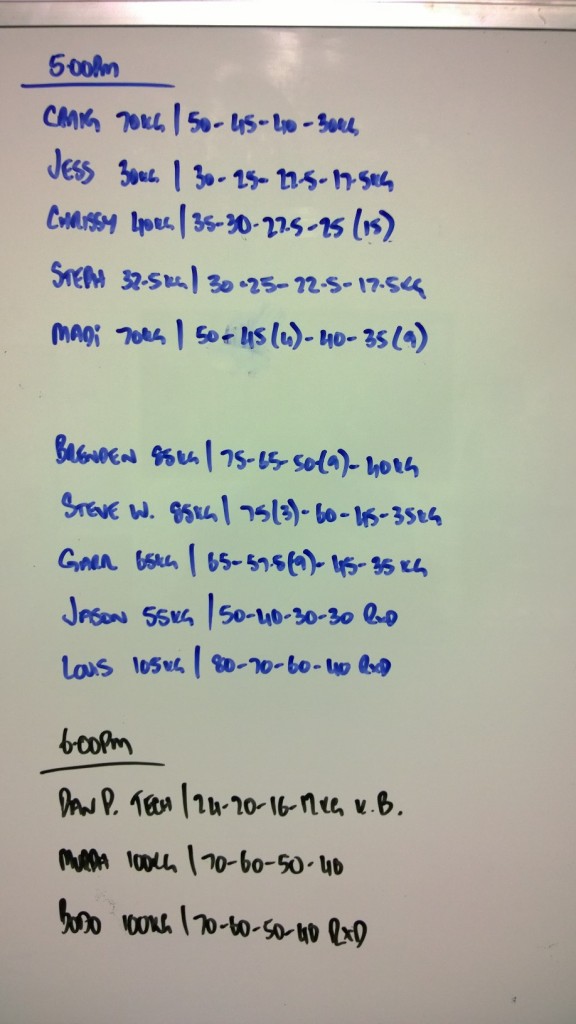 5:00Pm
CRAIG 70KG | 50-45-40-30KG
JESS 30KG | 30-25-22.5-17.5KG
CHRISSY 40KG | 35-30-27.5-25 (15)
STEPH 32.5KG | 30-25-22.5-17.5KG
MADi 70KG | 50-45(4)-40-35(9)
BRENDEN 85KG | 75-65-50(9)-40KG
STEVE W. 85KG | 75(3)-60-45-35KG
65KG | 65-57.5(9)-45-35KG
JASON 55KG | 50-40-30-30 RxD
LOUIS 105KG | 80-70-60-40 RxD
6:00Pm
DAN P. TECH | 24-20-16-12KG K.B.
100KG | 70-60-50-40
BOBO 100KG | 70-60-50-40 RxD